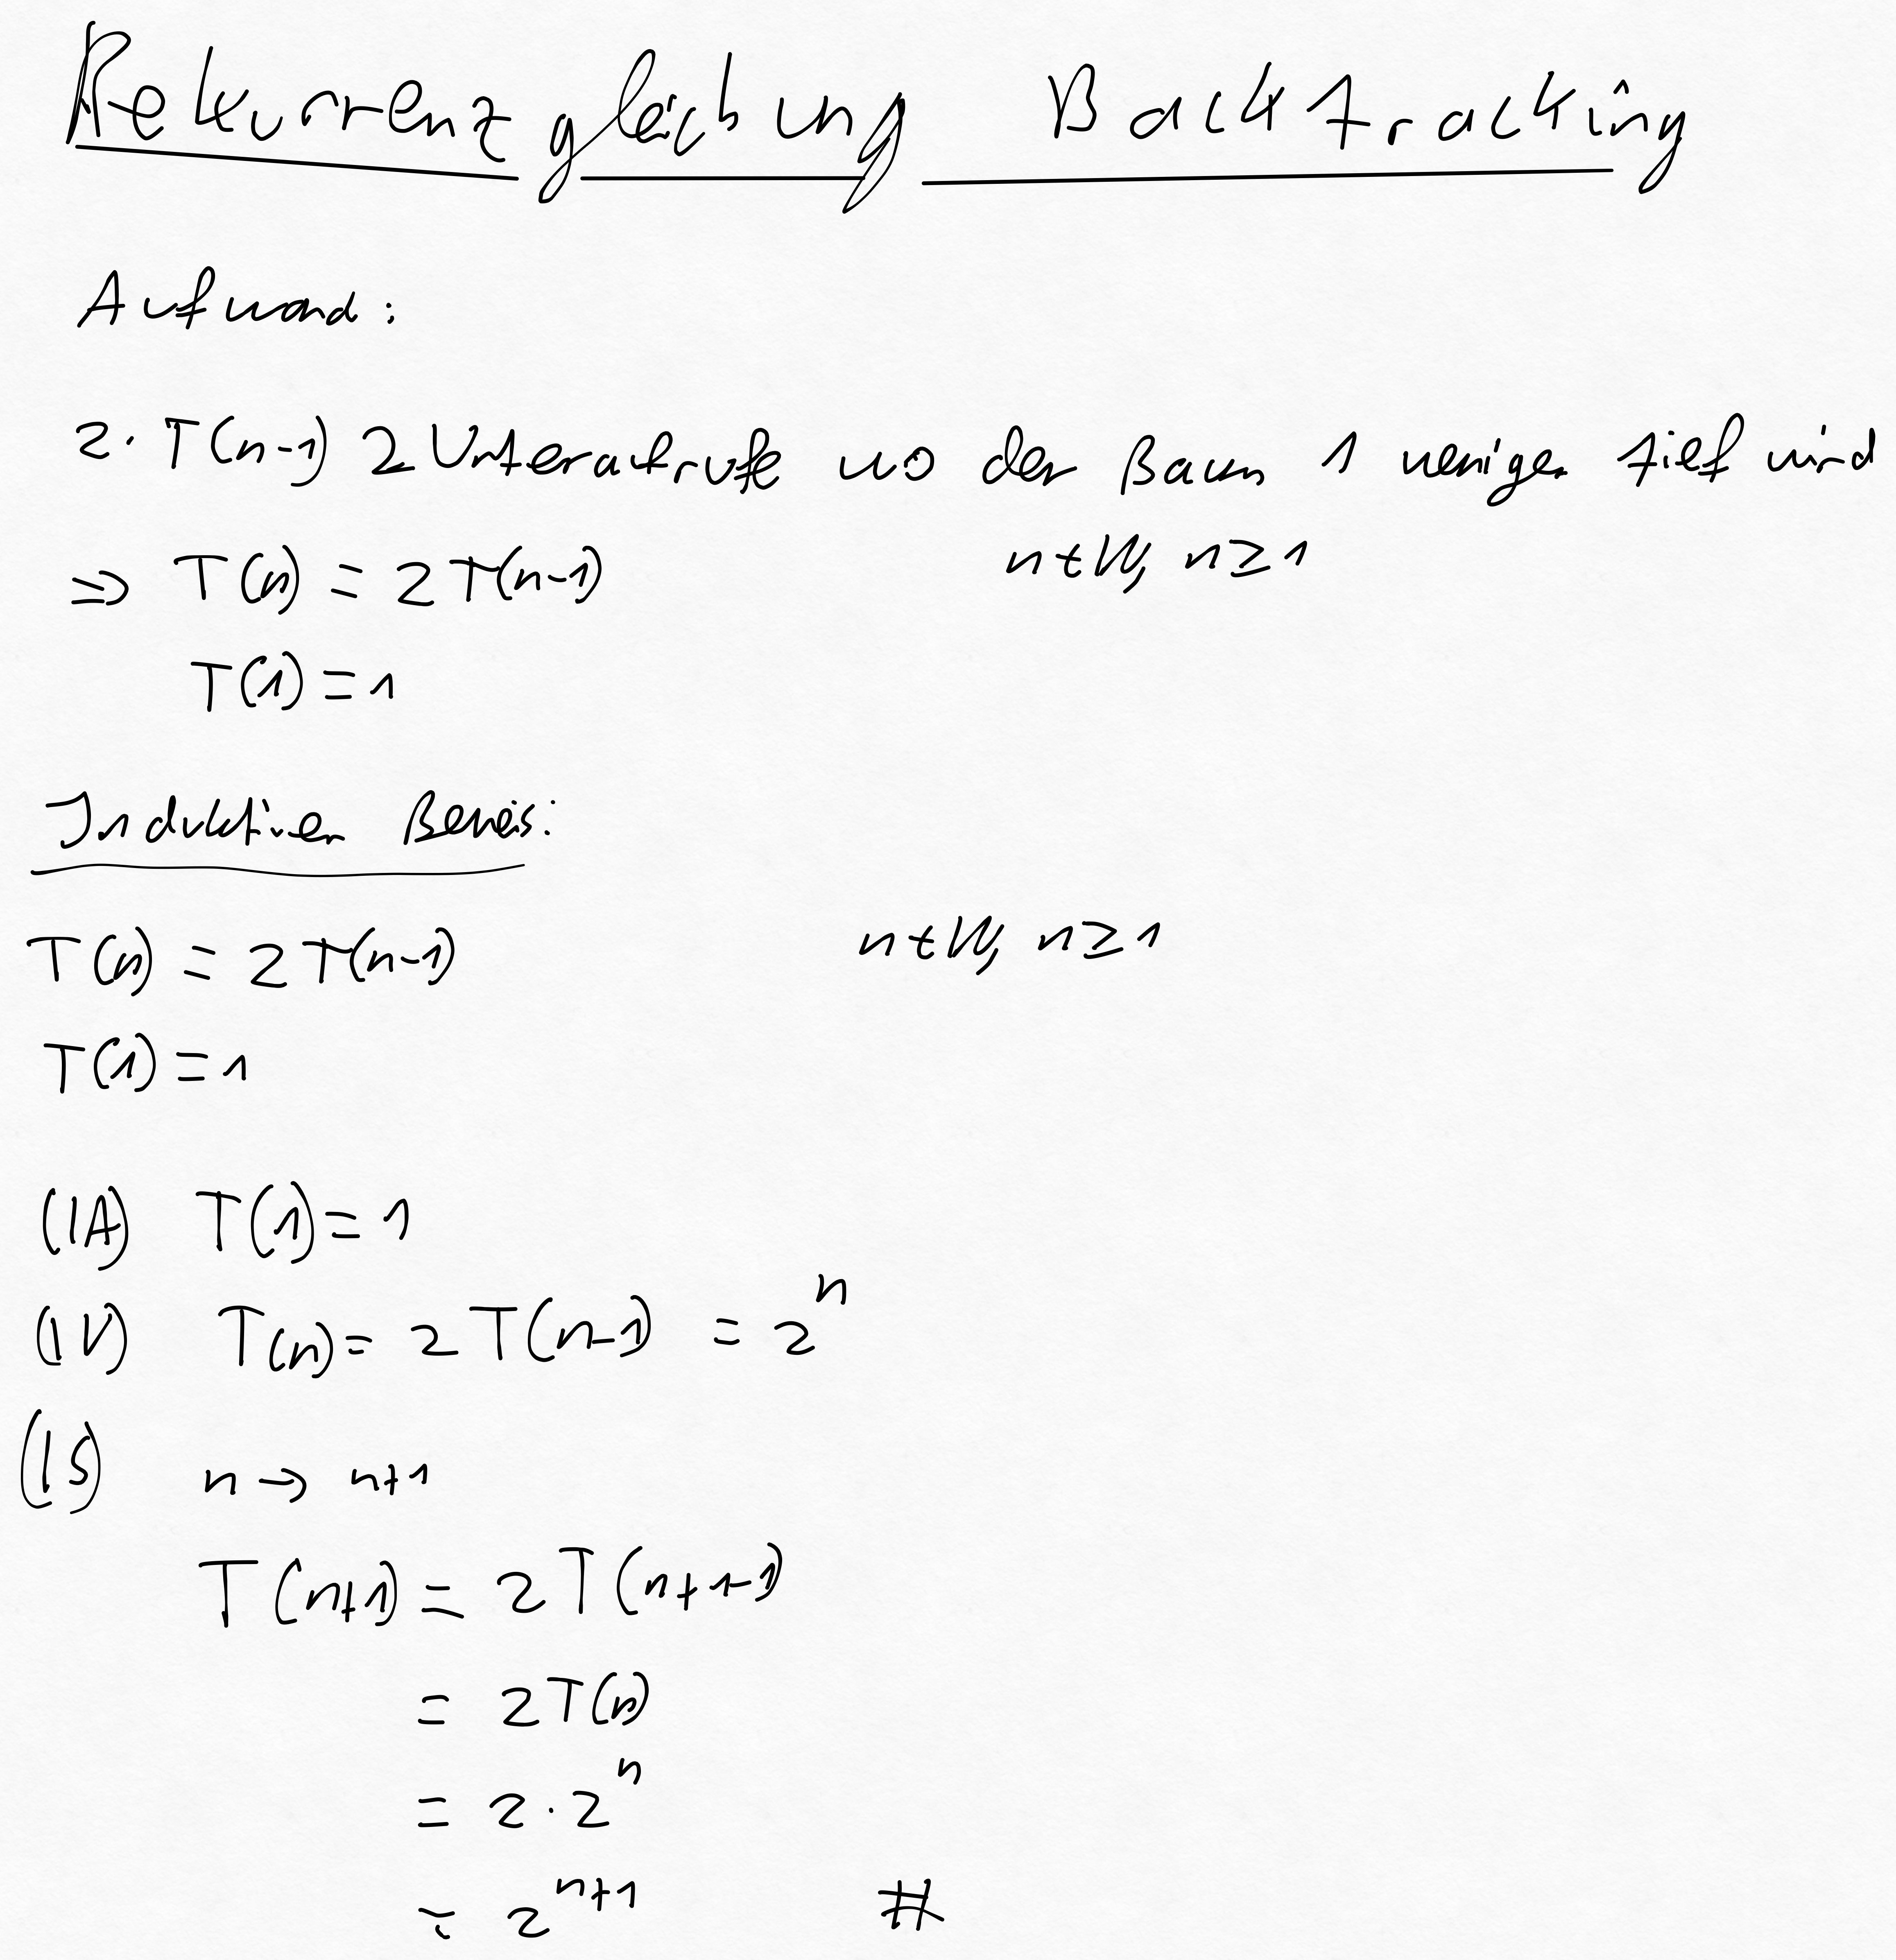 Rekurrenzgleichung Backtracking
Aufwand:
2· T(n-1) 2 Unteraufrufe wo der Baum 1 weniger tief wird
⇒ T(n) = 2T(n-1) n∈ℕ, n≥1
T(1) = 1
Induktiver Beweis:
T(n) = 2T(n-1) n∈ℕ, n≥1
T(1) = 1
(IA) T(1) = 1
(IV) T(n) = 2T(n-1) = 2^n
(IS) n → n+1
T(n+1) = 2T(n+1-1)
= 2T(n)
= 2·2^n
= 2^{n+1} #